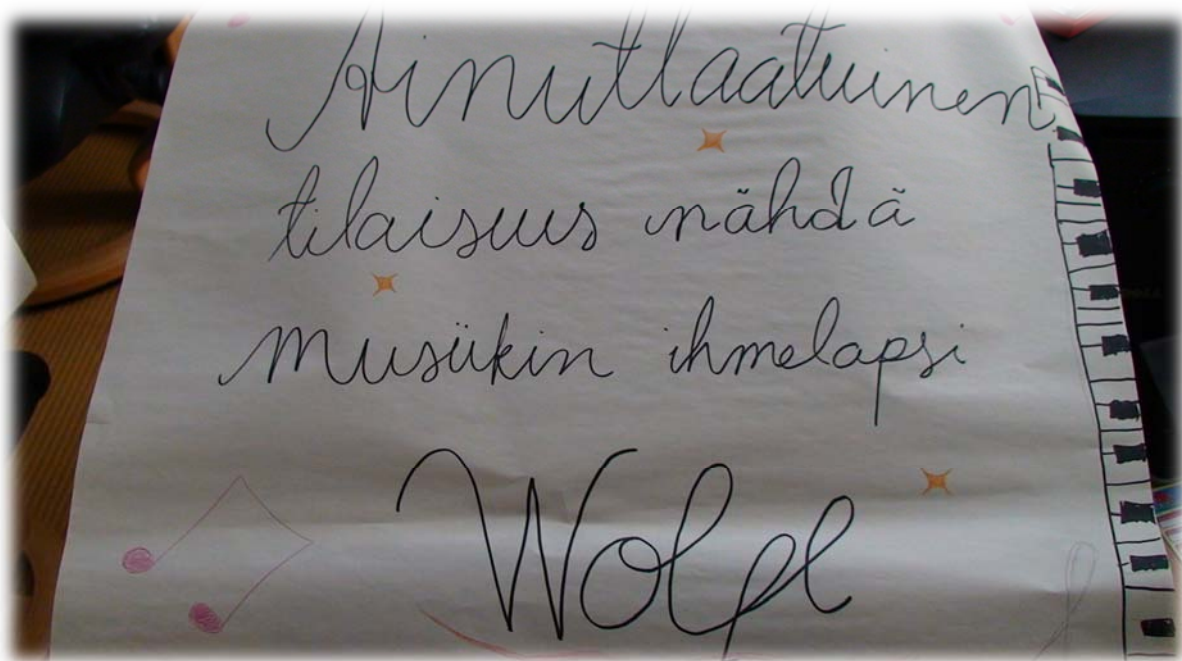 Ainutlaatuinen
tilaisuus nähdä
Musiikin ihmelapsi